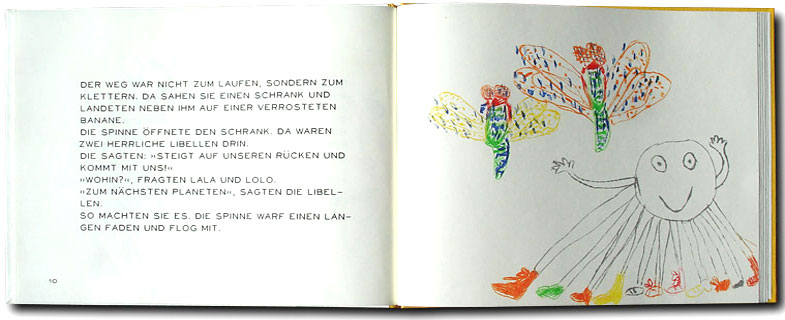 DER WEG WAR NICHT ZUM LAUFEN, SONDERN ZUM
KLETTERN. DA SAHEN SIE EINEN SCHRANK UND
LANDETEN NEBEN IHM AUF EINER VERROSTETEN
BANANE.
DIE SPINNE ÖFFNETE DEN SCHRANK. DA WAREN
ZWEI HERRLICHE LIBELLEN DRIN.
DIE SAGTEN: »STEIGT AUF UNSEREN RÜCKEN UND
KOMMT MIT UNS!«
»WOHIN?«, FRAGTEN LALA UND LOLO.
»ZUM NÄCHSTEN PLANETEN«, SAGTEN DIE LIBEL-
LEN.
SO MACHTEN SIE ES. DIE SPINNE WARF EINEN LAN-
GEN FADEN UND FLOG MIT.
10